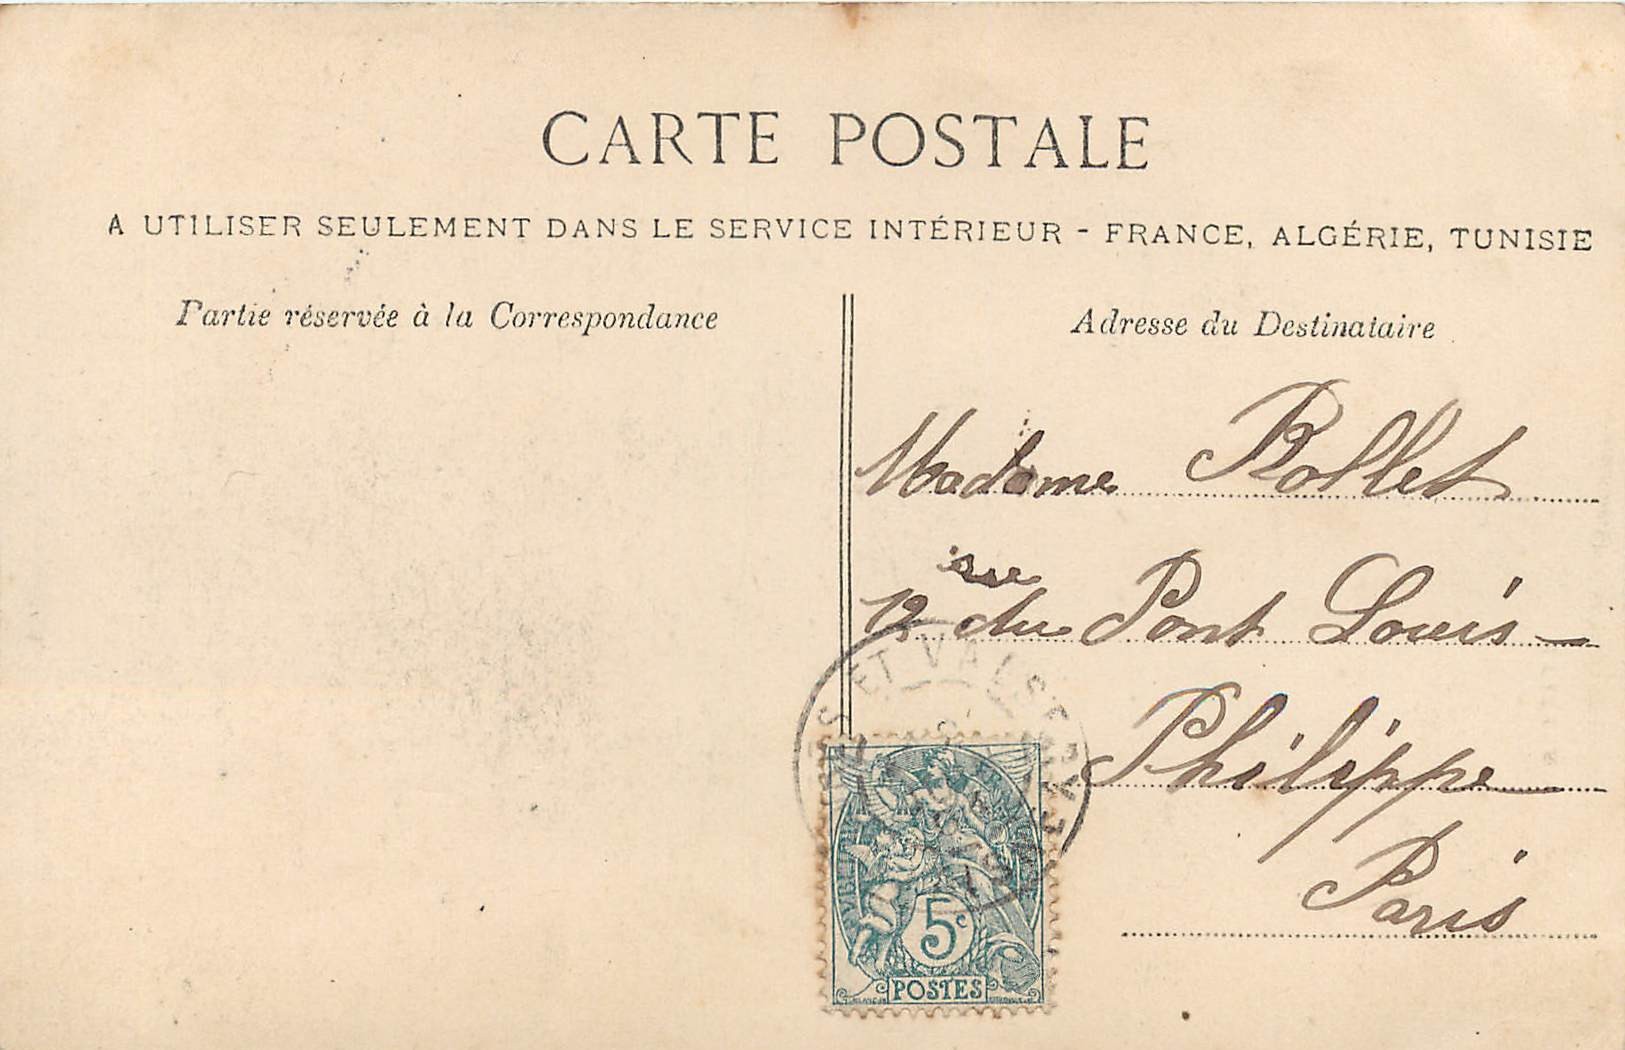 CARTE POSTALE
A UTILISER SEULEMENT DANS LE SERVICE INTÉRIEUR - FRANCE, ALGÉRIE, TUNISIE
Partie réservée à la Correspondance
Adresse du Destinataire
Madame Rollet
rue
12 du Pont Louis-
Philippe
Paris
ET VALS
5c
POSTES